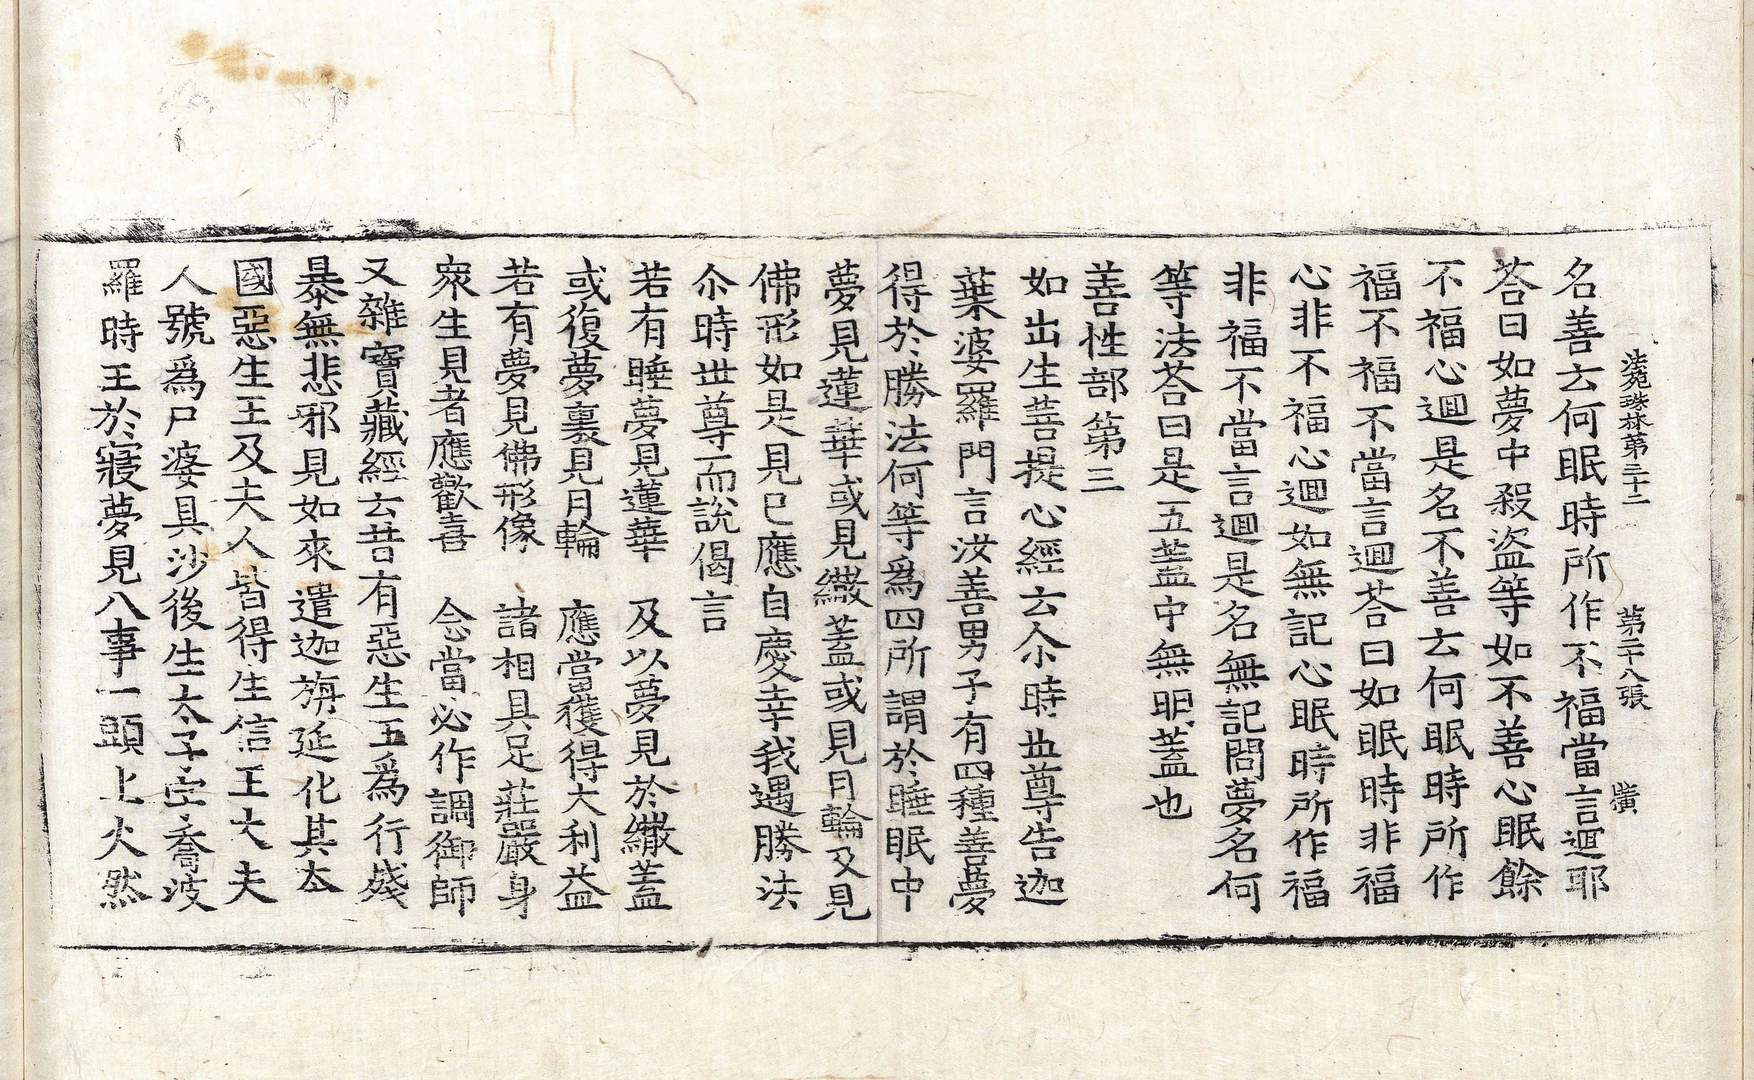 法苑珠林第三十二 第二十八張 㒹
名善云何眠時所作不福當言迴耶
荅曰如夢中殺盗等如不善心眠餘
不福心迴是名不善云何眠時所作
福不福不當言迴荅曰如眠時非福
心非不福心迴如無記心眠時所作福
非福不當言迴是名無記問夢名何
等法荅曰是五盖中無明盖也
善性部第三
如出生菩提心經云尒時世尊告迦
葉婆羅門言汝善男子有四種善夢
得於勝法何等爲四所謂於睡眠中
夢見蓮華或見繖盖或見月輪及見
佛形如是見已應自慶幸我遇勝法
尒時世尊而説偈言
若有睡夢見蓮華 及以夢見於繖盖
或復夢裏見月輪 應當獲得大利益
若有夢見佛形像 諸相具足莊嚴身
衆生見者應歡喜 念當必作調御師
又雜寶藏經云昔有惡生王爲行殘
暴無悲邪見如來遣迦旃延化其本
國惡生王及夫人皆得生信王大夫
人號爲尸婆具沙後生太子字喬波
羅時王於寢夢見八事一頭上火然